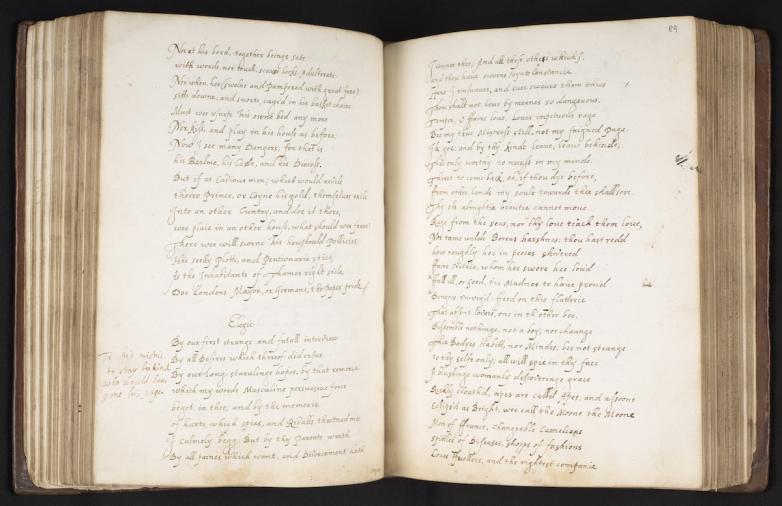 Nor at his bord, together beinge satt
with words, nor touch, scarce lookes Adulterate.
Nor when hee swolne and Pamperd with great fare
sitts downe, and snorts, caged in his basket chaire.
Must wee usurpe his owne bed any more
Nor kisse, and play in his house as before.
Now I see many Dangers; for that is
his Realme, his Castle, and his Diocess.
But if as Envious men, which would revile
theire Prince, or Coyne his gold, themselves exile
Into an other Cuntry, and doe it there,
wee plaie in an other house, what should we feare
There wee will scorne his houshould Pollicies
His seely Plotts, and Pentionarie spies
As the Inhabitants of Thames right side
Doe Londons Maior, or Germans, the Popes pride.
Elegie
By our first strange and fatall interview
By all Desires which thereof did ensue
By our long starvlinge hopes, by that remorse
which my words Masculine perswasive force
begot in thee, and by the memorie
of hurts, which spies, and Rivalls threatned mee
I calmely begg: But by thy Parents wrath
By all paines which want, and Divorcement hath
To his mistris
to stay behind
who would have
gone his page.
89
I conjure thee, And all those othes which I
And thou have sworne to joynt Constancie
Here I unsweare, and over sweare them thus
Thou shalt not love by meanes so dangerous.
Temper, O faire love, Loves impetuous rage
Bee my true Mistress still, not my faigned Page.
Ile goe and by thy kinde leave, leave behinde,
Thee only worthy to nurse in my minde.
Thirst to come back, oh, if thou dye before,
From other lands my soule towards thee shall sore.
Thy else almightie beautie cannot move
Rage from the seas, nor thy love teach them love,
Nor tame wilde Boreas harshnes: thou hast redd
how roughly hee in peeces shivered
Faire Orithea, whom hee swore hee lov'd
Fall ill, or good, tis Madnes to have prov'd
Dangers unurg'd: feed on this flatterie
That absent lovers, one in th other bee.
Dissemble nothinge, not a boy; nor chaunge
Thie Bodyes Habitt, nor Mindes; bee not strange
to thy selfe only; all will spie in thy face
A blushinge womanly discoveringe grace
Richly cloathd, apes are calld Apes; and assoone
Eclipsd as Bright, wee call the Moone the Moone
Men of France, changeable Camelions
spittles of Diseases, shopps of fashions
Loves Fuellers, and the rightest companie